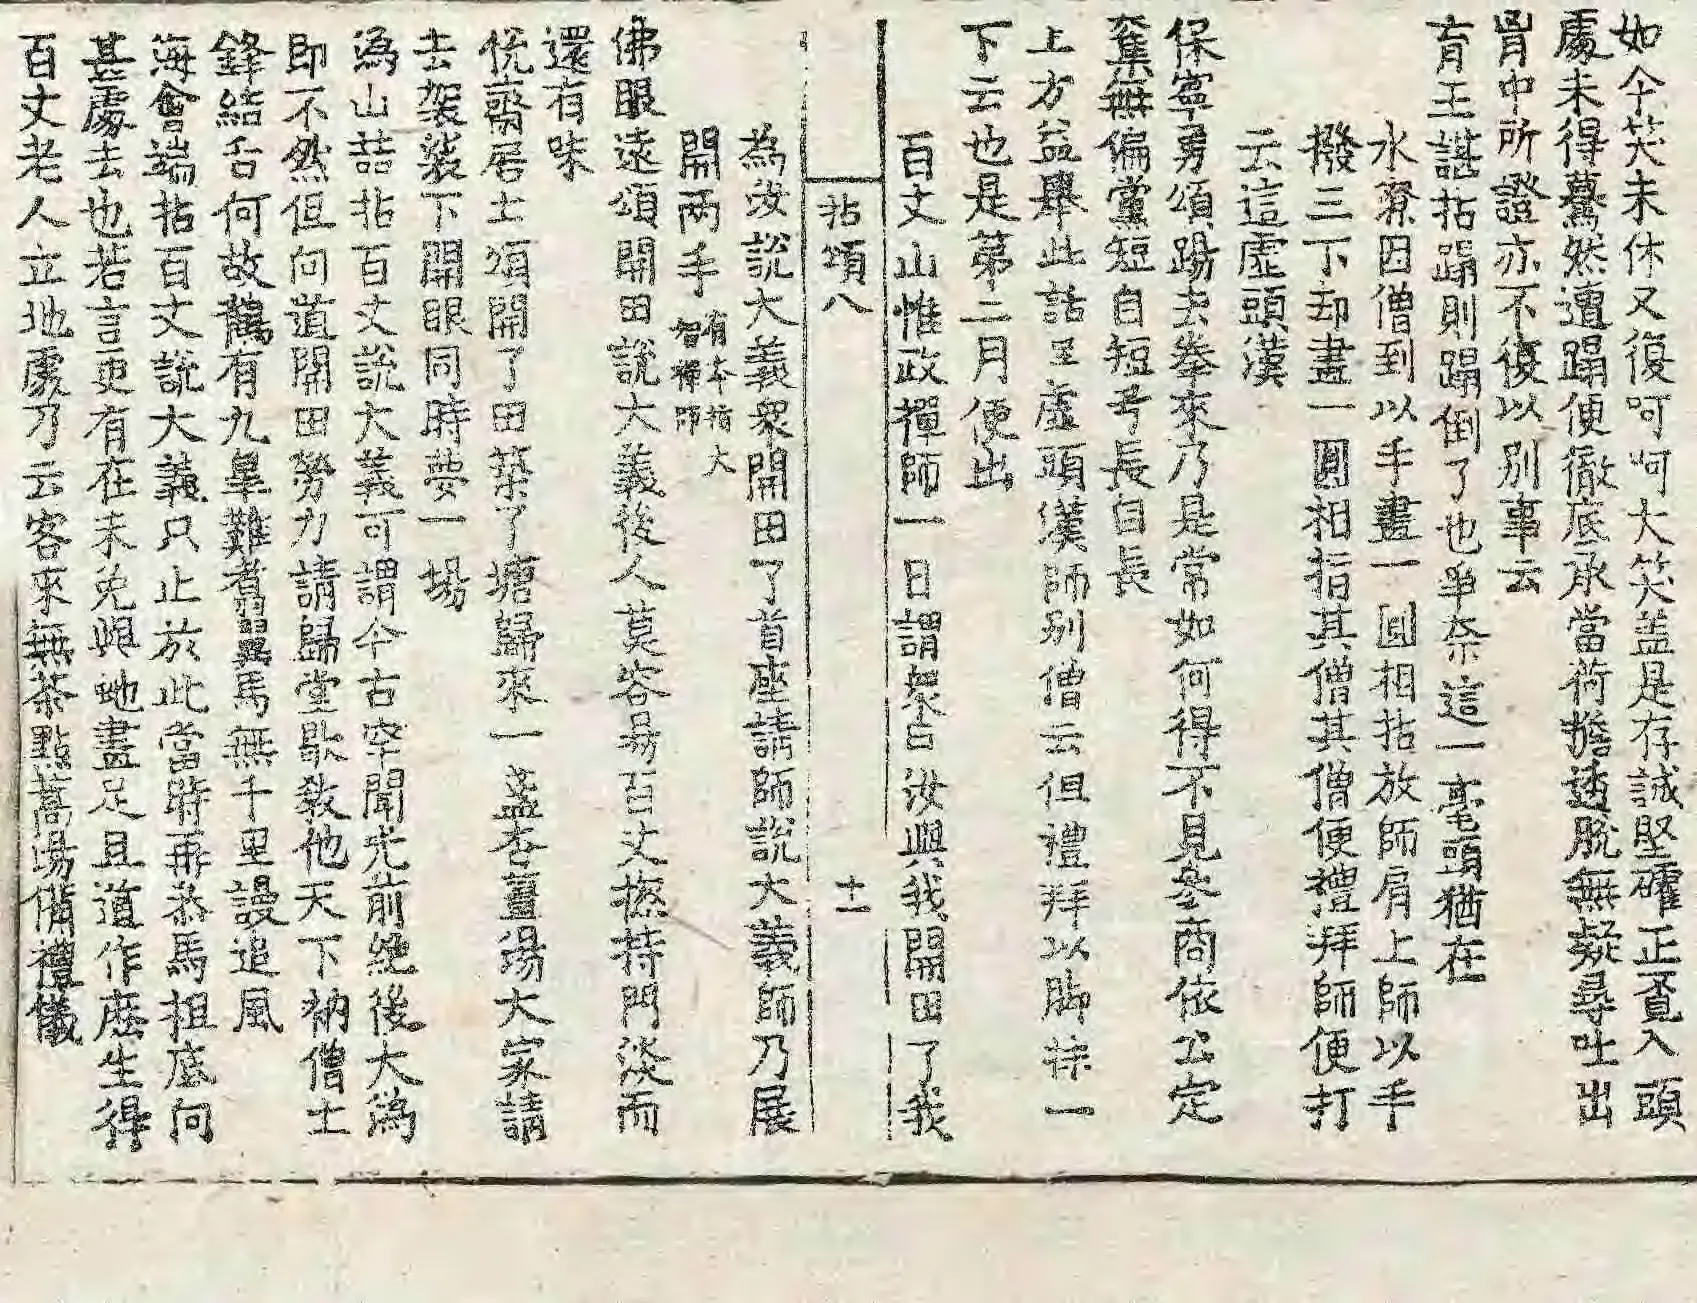 如今笑未休又復呵呵大笑盖是存誠堅確正覔入頭
處未得驀然遭蹋便徹底承當荷擔透脫無疑尋吐出
胷中所證亦不復以别事云
育王諶拈蹋則蹋倒了也争奈這一毫頭猶在
水潦因僧到以手畫一圓相拈放師肩上師以手
撥三下却畫一圓相指其僧其僧便禮拜師便打
云這虛頭漢
保寧勇頌踢去拳來乃是常如何得不見參商依公定
奪無偏黨短自短兮長自長
上方益舉此話至虛頭漢師别僧云但禮拜以脚抹一
下云也是第二月便出
百丈山惟政禪師一日謂衆曰汝與我開田了我
拈頌八 十一
為汝說大義衆開田了首座請師說大義師乃展
開两手有本拈大智禪師
佛眼遠頌開田說大義後人莫容昜百丈摠持門淡而
還有味
恱齋居士頌開了田築了塘歸來一盞杏薑湯大家請
去袈裟下開眼同時夢一場
溈山喆拈百丈說大義可謂今古罕聞光前絶後大溈
即不然但向道開田勞力請歸堂歇敎他天下衲僧士
鋒結舌何故鶴有九臯難翥翼馬無千里謾追風
海會端拈百丈說大義只止於此當時再叅馬祖底向
甚處去也若言更有在未免與虵畫足且道作麽生得
百丈老人立地處乃云客來無茶點蒿場備禮儀